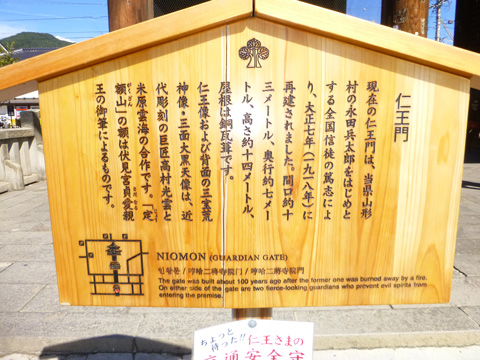 仁王門
現在の仁王門は、当県山形
村の永田兵太郎をはじめと
する全国信徒の篤志によ
り、大正七年(一九一八年)に
再建されました。間口約十
三メートル、奥行約七メー
トル、高さ約十四メートル、
屋根は銅瓦葺です。
仁王像および背面の三宝荒
神像・三面大黒天像は、近
代彫刻の巨匠高村光雲と
米原雲海の合作です。「定
額山」の額は伏見宮貞愛親
王の御筆によるものです。
NIOMON (GUARDIAN GATE)
인왕문 / 哼哈二将寺院门 / 哼哈二將寺院門
The gate was built about 100 years ago after the former one was burned away by a fire.
On either side of the gate are two fierce-looking guardians who prevent evil spirits from
entering the premise.
ちょっと
待った!! 仁王さまの
交通安全守